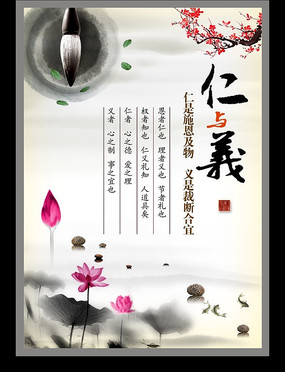 仁与義
仁是施恩及物 义是裁断合宜
恩者仁也 理者义也 节者礼也
权者知也 仁义礼知 人道具矣
仁者 心之德 爱之理
义者 心之制 事之宜也